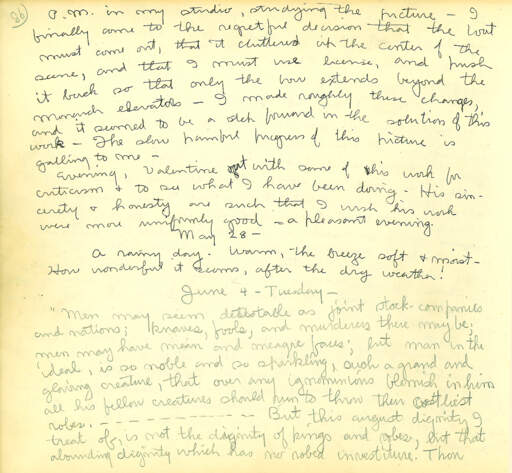 86
P.M. in my studio, studying the picture - I
finally came to the regretful decision that the boat
must come out, that it cluttered up the center of the
scene, and that I must use license, and push
it back so that only the bow extends beyond the
monarch elevators - I made roughly these changes,
and it seemed to be a step forward in the solution of this
work - The slow painful progress of this picture is
galling to me -
Evening, Valentine out with some of his work for
criticism & to see what I have been doing - His sin-
cerity & honesty are such that I wish his work
were more uniformly good - a pleasant evening.
May 28 -
A rainy day. Warm, - the breeze soft & moist -
How wonderful it seems, after the dry weather!
June 4 - Tuesday -
"Men may seem detestable as joint stock-companies
and nations; knaves, fools, and murderers there may be;
men may have mean and meagre faces; but man in the
ideal, is so noble and so sparkling, such a grand and
glowing creature, that over any ignominious blemish in him
all his fellow creatures should run to throw their costliest
robes. - - - - - - - - - - - - But this august dignity I
treat of, is not the dignity of kings and robes, but that
abounding dignity which has no robed investiture. Thou